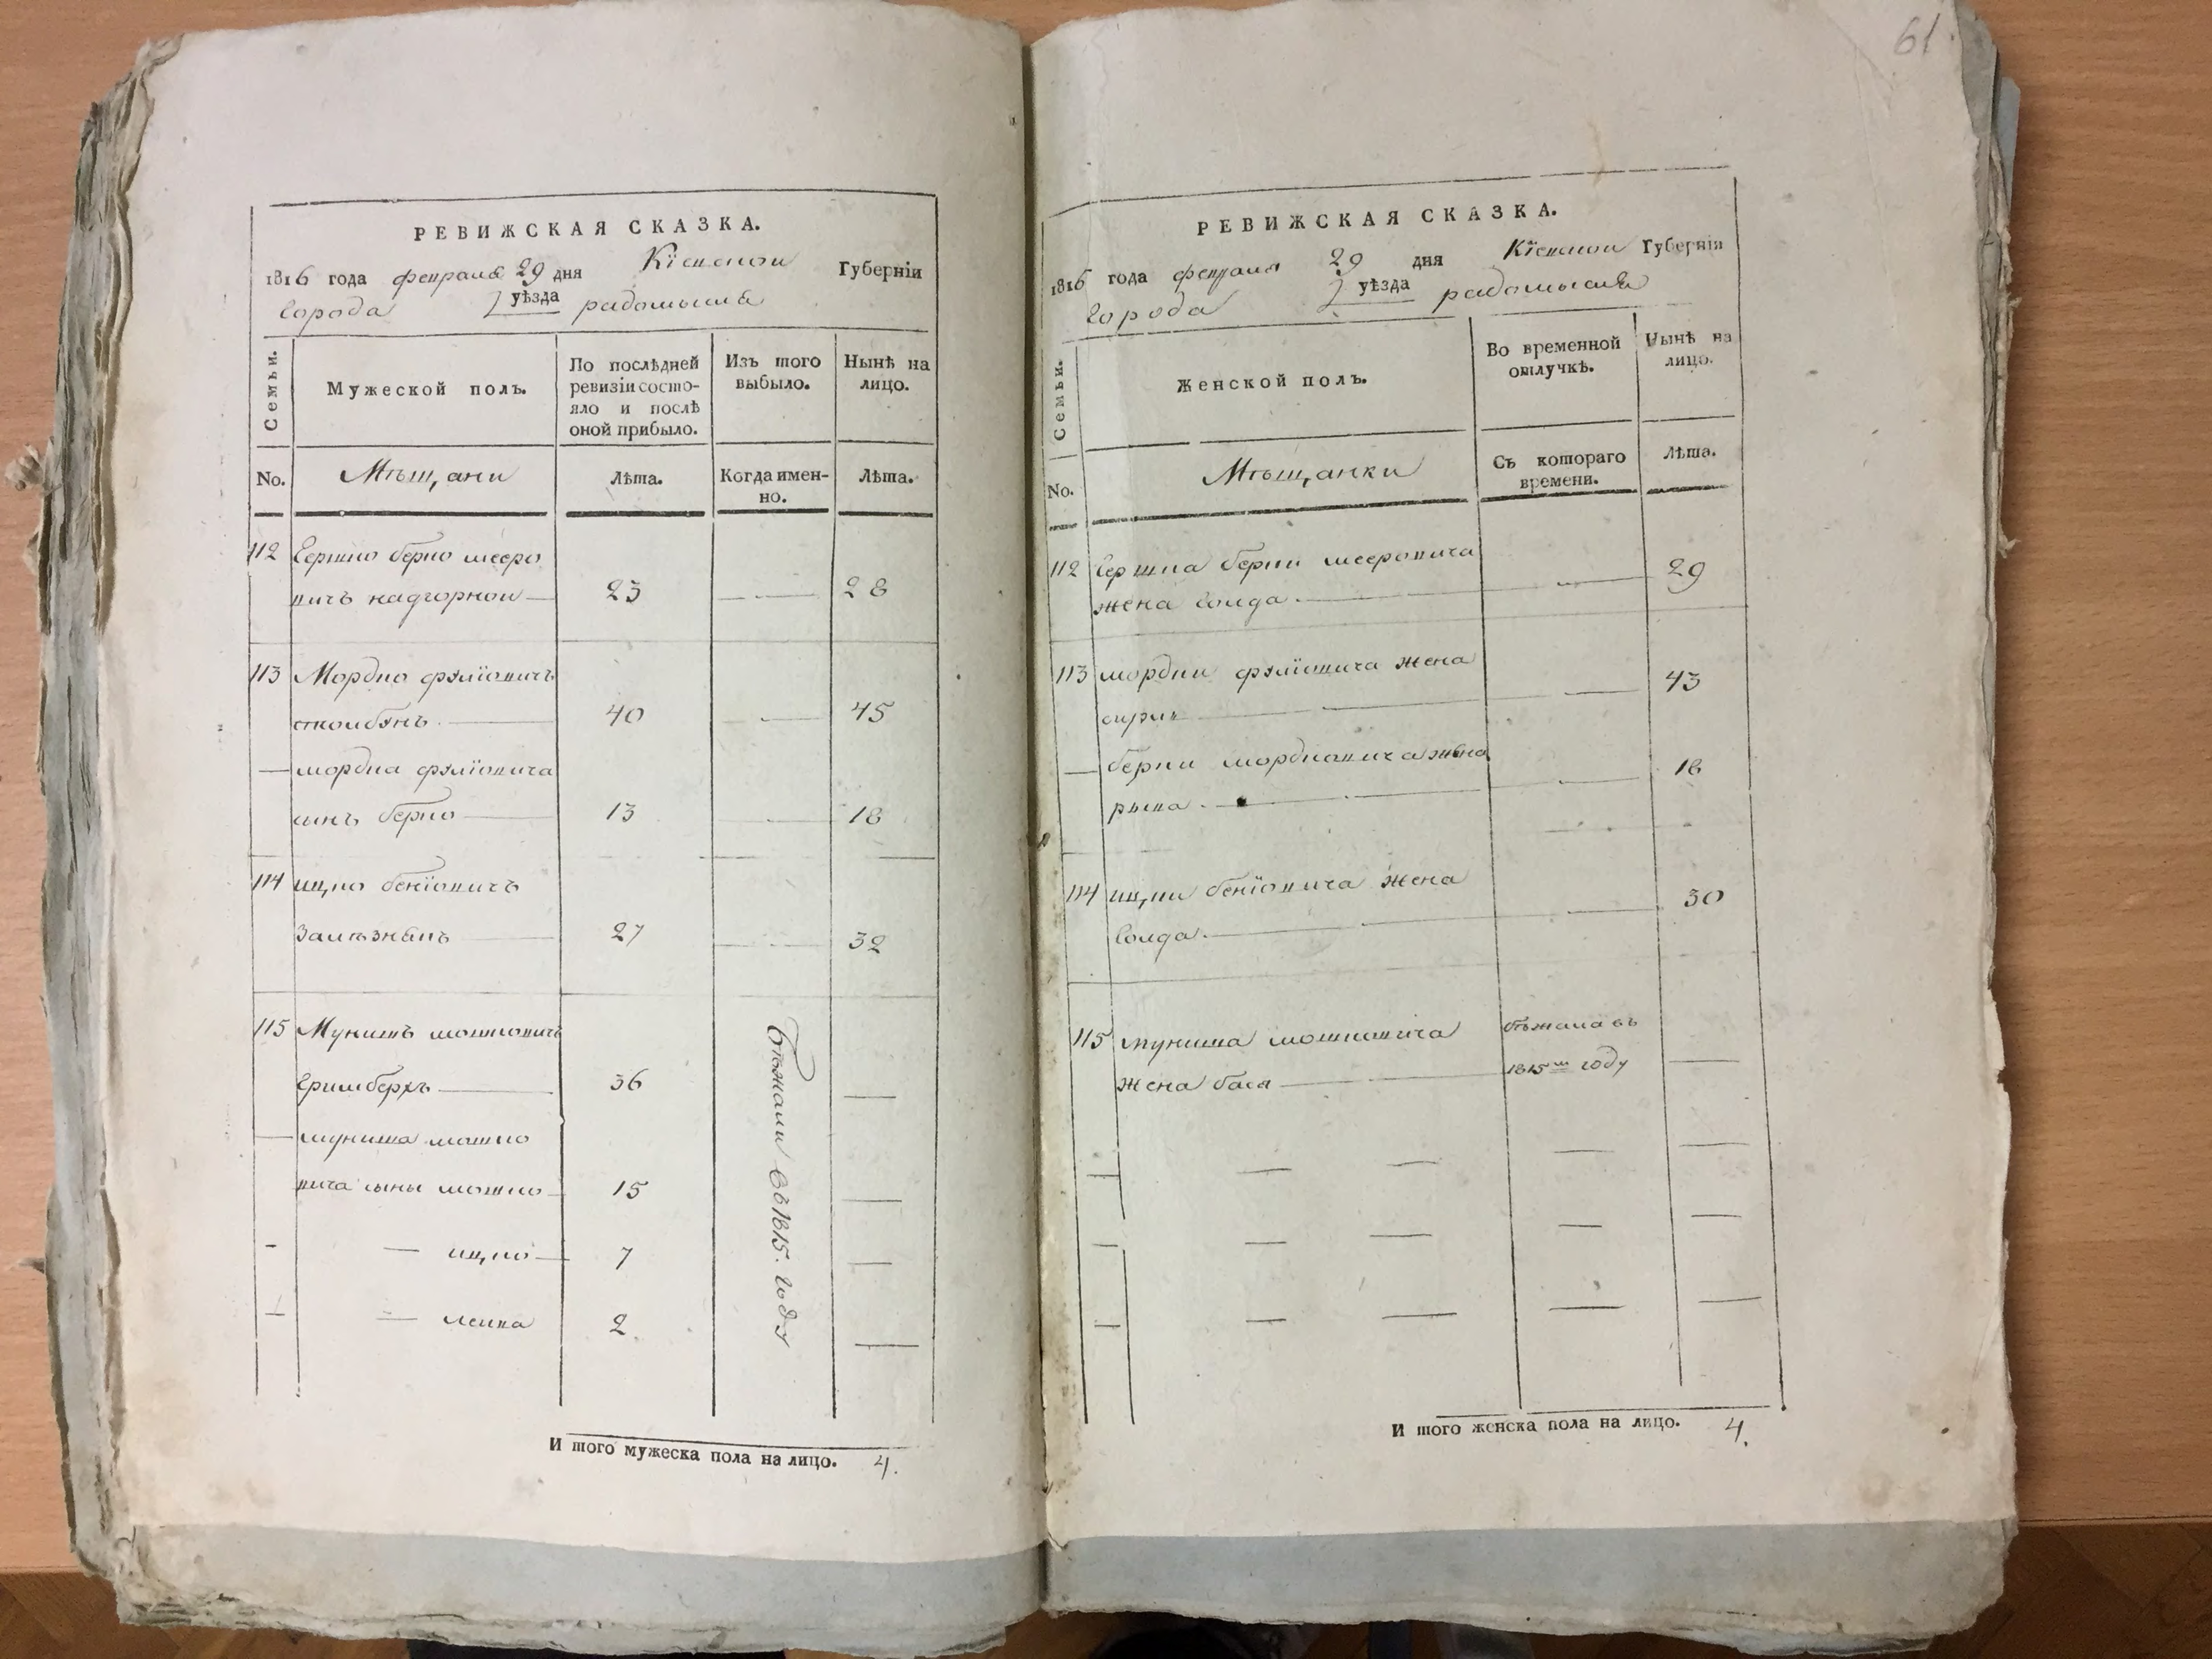 РЕВИЖСКАЯ СКАЗКА.
1816 года февраля 29 дня Кіевской Губерніи
города уѣзда радомысля
Семьи.
Мужеской полъ.
По послѣдней ревизіи состояло и послѣ оной прибыло.
Изъ того выбыло.
Нынѣ на лицо.
No.
Мѣщани
Лѣта.
Когда именно.
Лѣта.
112 Гершко берко мееро
вичъ надгорной 23 28
113 Мордко
40 45
мордка
сынъ берко 13 18
114 ицко беніовичъ
27 32
115 Мунишъ мошковичъ
36
Бѣжали въ 1815. году
муниша мошко
вича сыны мошко 15
ицко 7
лейба 2
И того мужеска пола на лицо. 4.
61.
РЕВИЖСКАЯ СКАЗКА.
1816 года февраля 29 дня Кіевской Губерніи
города уѣзда радомысля
Семьи.
Женской полъ.
Во временной отлучкѣ.
Нынѣ на лицо.
No.
Мѣщанки
Съ котораго времени.
Лѣта.
112 гершка берки мееровича
жена голда 29
113 мордки жена
43
берки мордковича жена
рывка 18
114 ицки беніовича жена
голда 30
115 муниша мошковича бѣжала въ
жена бася 1815м году
И того женска пола на лицо. 4.